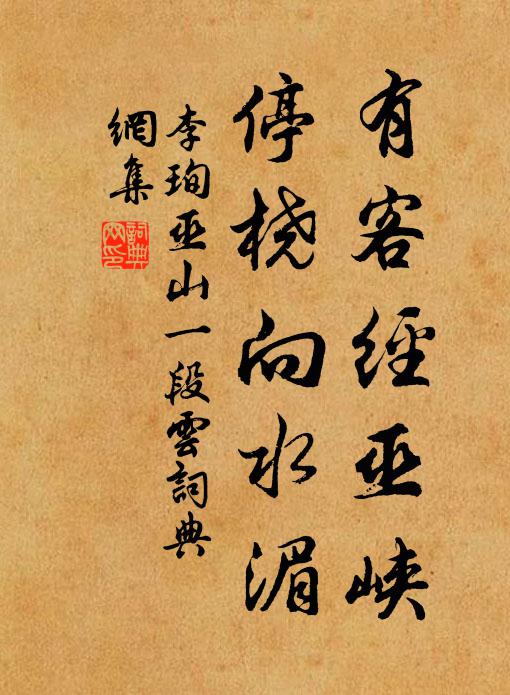 有客經巫峽
停橈向水湄
李珣巫山一段雲詞典
網集
詞典網印